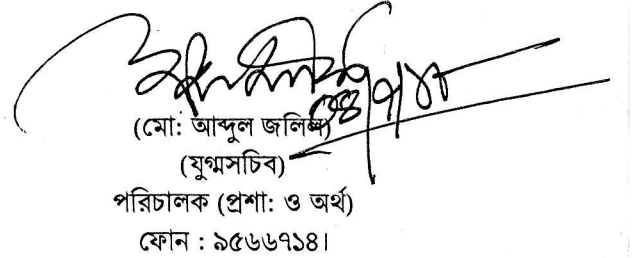 (মো: আব্দুল জলিল)
(যুগ্মসচিব)
পরিচালক (প্রশা: ও অর্থ)
ফোন : ৯৫৬৬৭১৪।